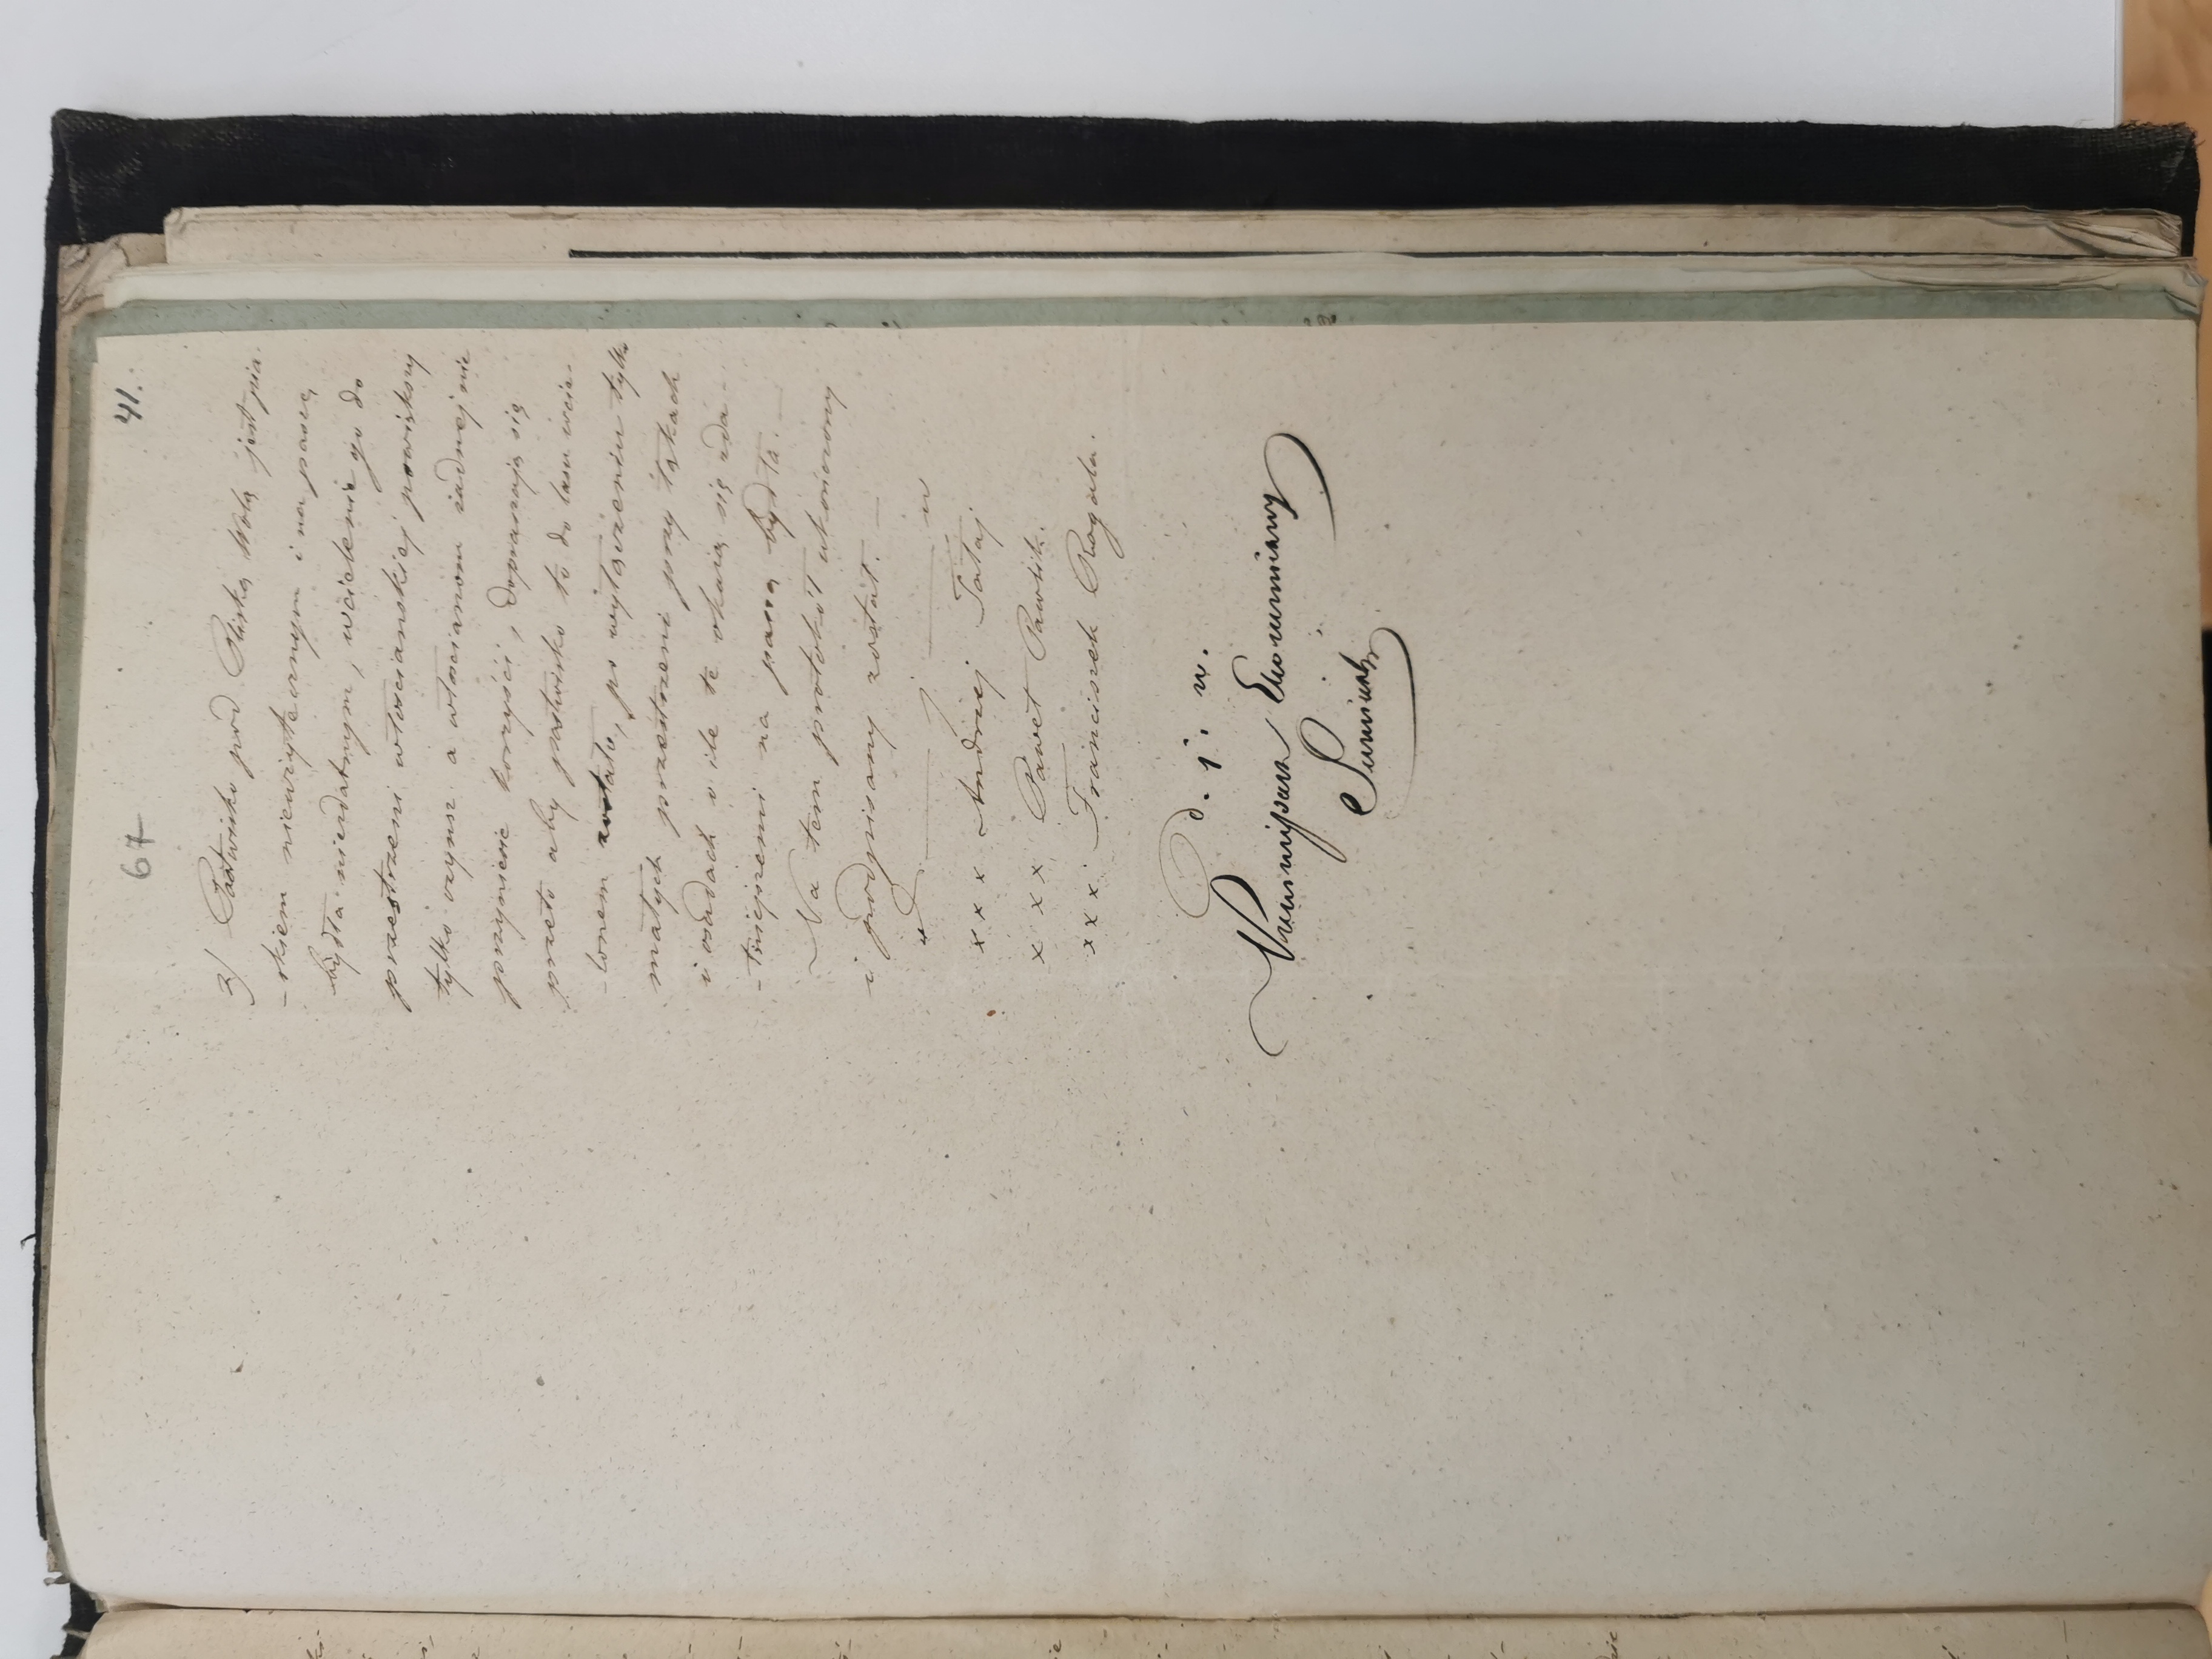 67
41.
3) Pastwisko pod Pliską Wolą jest pia-
-skiem nieużytecznym i na paszę
bydła niezdatnym, wcielenie go do
przestrzeni włościańskiej powiększy
tylko czynsz a włościanom żadnej nie
przyniesie korzyści, dopraszają się
przeto aby pastwisko to do lasu wcie-
-lonem zostało, po wyłączeniu tylko
małych przestrzeni przy łąkach
i osadach o ile te okażą się zda-
-tniejszemi na paszę bydła. —
Na tem protokół ukończony
i podpisany został. —
x x x Andrzej Tataj
x x x Paweł Pawlik.
x x x Franciszek Rogala.
d. j. w.
Kommissarz Ekonomiczny